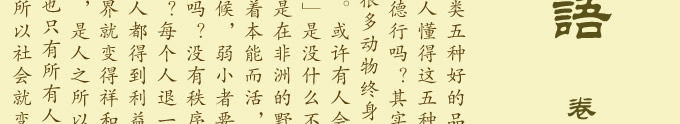 語
卷
类五种好的品
人懂得这五种
德行吗？其实
很多动物终身
。或许有人会
」是没什么不
是在非洲的野
着本能而活，
候，弱小者要
吗？没有秩序
？每个人退一
人都得到利益
界就变得祥和
，是人之所以
也只有所有人
所以社会就变